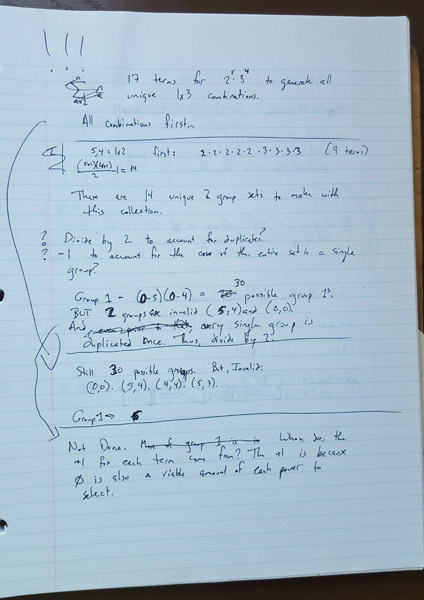 ! ! !
17 terms for 2^5·3^4 to generate all
unique 1x3 combinations.
All combinations first...
5,4: 1x2 first: 2·2·2·2·2·3·3·3·3 (9 terms)
(5+1)(4+1)/2 -1 = 14
There are 14 unique 2 group sets to make with
this collection.
? Divide by 2 to account for duplicates?
? -1 to account for the case of the entire set in a single
group?
Group 1 - (0-5)(0-4) = 30 possible group 1's.
BUT 2 groups are invalid (5,4) and (0,0).
And every single group is
duplicated once. Thus, divide by 2.
Still 30 possible groups. But, Invalid:
(0,0). (5,4). (4,4). (5,3).
Group 1 →
Not Done. Where does the
+1 for each term come from? The +1 is because
Ø is also a viable amount of each power to
select.